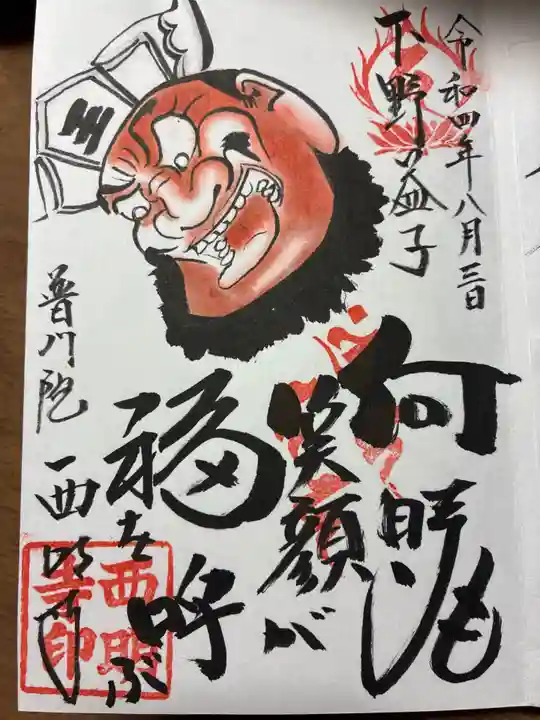 令和四年八月三日
下野益子
何時も
笑顔が
福を呼ぶ
普門院 西明寺
王
西明寺印